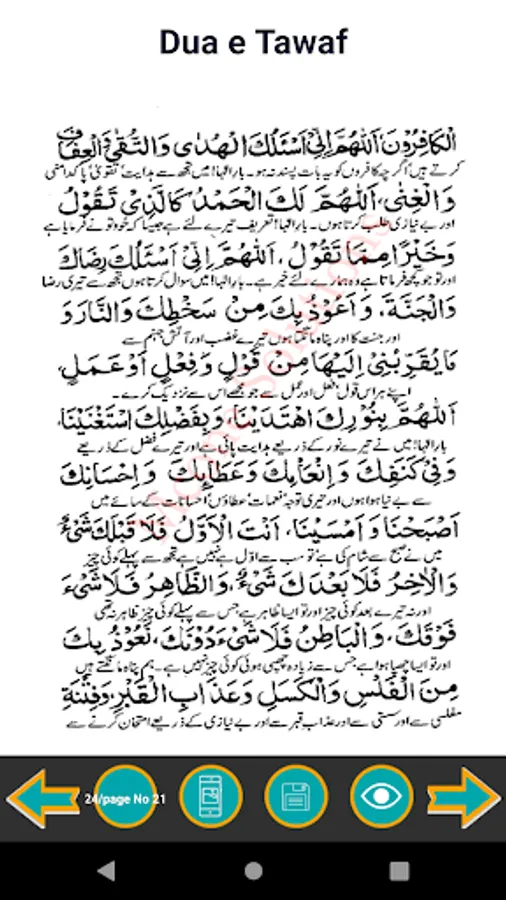 Dua e Tawaf
الْكَافِرُوْنَ، اَللّٰهُمَّ اِنِّیْۤ اَسْئَلُكَ الْهُدٰى وَالتُّقٰى وَالْعِفَافَ
کرتے ہیں اگرچہ کافروں کو یہ بات پسند نہ ہو۔ بارالٰہا! میں تجھ سے ہدایت' تقویٰ' پاکدامنی
وَالْغِنٰى، اَللّٰهُمَّ لَكَ الْحَمْدُ كَالَّذِیْ تَقُوْلُ
اور بے نیازی طلب کرتا ہوں۔ بارالٰہا! تعریف تیرے لئے ہے جیسا کہ خود تو نے فرمایا ہے
وَخَيْرًا مِمَّا نَقُوْلُ، اَللّٰهُمَّ اِنِّیْۤ اَسْئَلُكَ رِضَاكَ
اور تو جو کچھ فرماتا ہے وہ ہمارے لئے خیر ہے۔ بارالٰہا! میں سوال کرتا ہوں تجھ سے تیری رضا
وَالْجَنَّةَ، وَاَعُوْذُ بِكَ مِنْ سَخَطِكَ وَالنَّارِ وَ
اور جنت کا اور پناہ مانگتا ہوں تیرے غضب اور آتش جہنم سے
مَا يُقَرِّبُنِیْۤ اِلَيْهَا مِنْ قَوْلٍ وَفِعْلٍ اَوْ عَمَلٍ،
اپنے ہر اس قول' فعل اور عمل سے جو مجھے اس سے نزدیک کرے۔
اَللّٰهُمَّ بِنُوْرِكَ اهْتَدَيْنَا، وَبِفَضْلِكَ اسْتَغْنَيْنَا،
بارالٰہا! میں نے تیرے نور کے ذریعے ہدایت پائی ہے اور تیرے فضل کے ذریعے
وَفِیْ كَنَفِكَ وَاِنْعَامِكَ وَعَطَايِكَ وَاِحْسَانِكَ
سے بے نیاز ہوا ہوں اور تیری توجہ' نعمات' عطاؤں' احسانات کے سائے میں
اَصْبَحْنَا وَاَمْسَيْنَا، اَنْتَ الْاَوَّلُ فَلَا قَبْلَكَ شَیْءٌ
میں نے صبح سے شام کی ہے' تو سب سے اوّل ہے نہیں ہے تجھ سے پہلے کوئی چیز
وَالْاٰخِرُ فَلَا بَعْدَكَ شَیْءٌ، وَالظَّاهِرُ فَلَا شَیْءَ
اور نہ تیرے بعد کوئی چیز اور تو ایسا ظاہر ہے جس سے پہلے کوئی چیز ظاہر نہ تھی
فَوْقَكَ، وَالْبَاطِنُ فَلَا شَیْءَ دُوْنَكَ، نَعُوْذُ بِكَ
اور تو ایسا چھپا ہوا ہے جس سے زیادہ چھپی ہوئی کوئی چیز نہیں ہے۔ ہم پناہ مانگتے ہیں
مِنَ الْفَلْسِ وَالْكَسَلِ وَعَذَابِ الْقَبْرِ، وَفِتْنَةِ
مفلسی سے اور سستی سے اور عذاب قبر سے اور بے نیازی کے ذریعے امتحان کرنے سے
24/page No 21